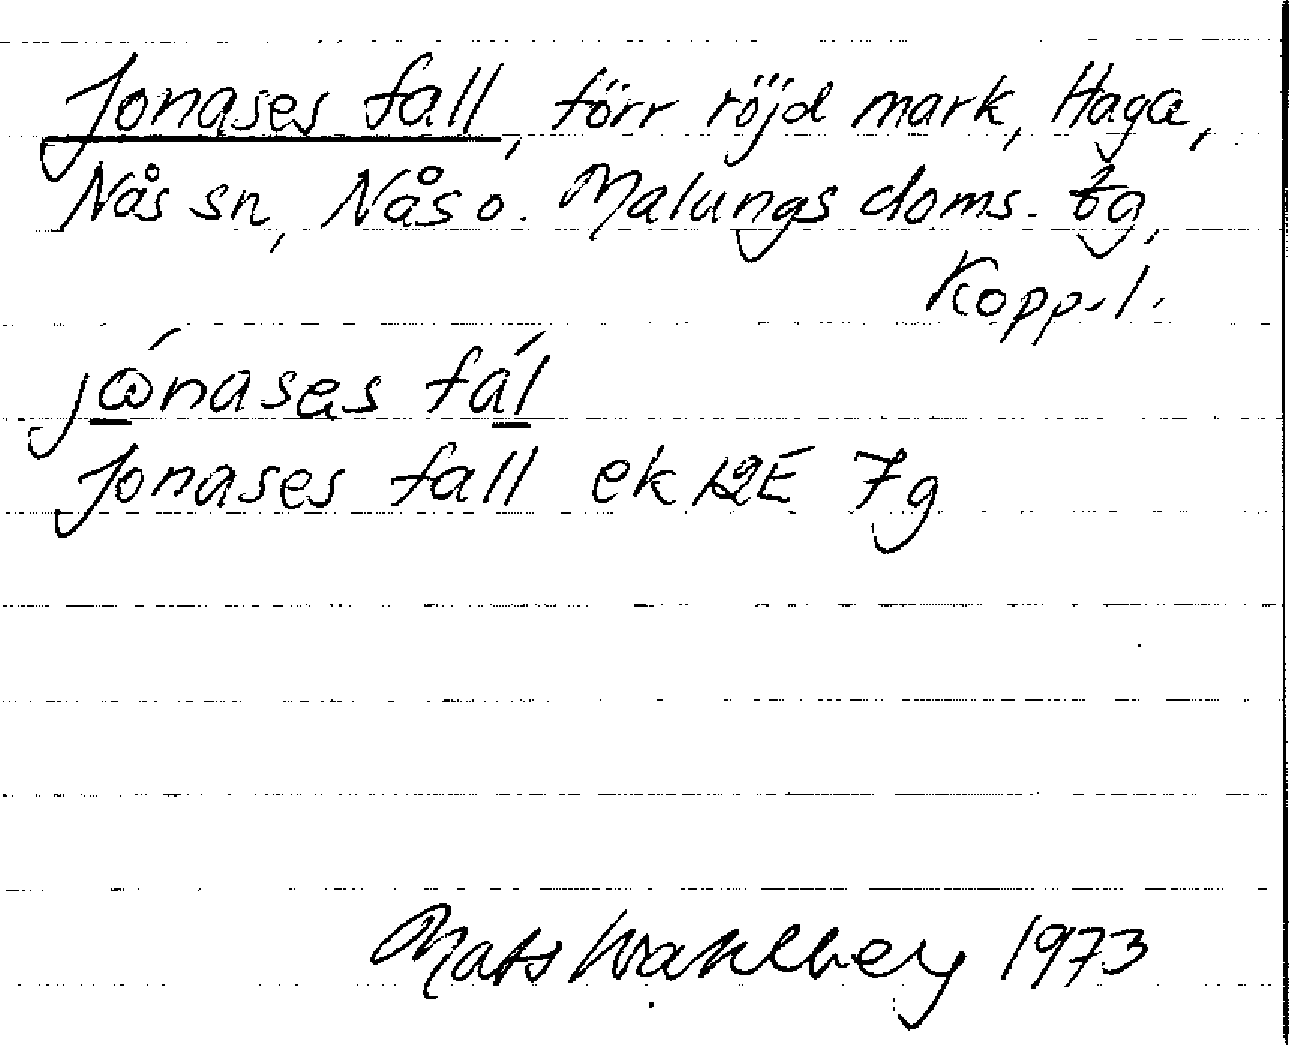 Jonases fall, törr röjd mark, Haga,
Nås sn, Nås o. Malungs doms. tg,
Kopp. l.
jó̲nases fa̲ĺ̲
Jonases fall ek 12E 7g
Mats Wahlberg 1973